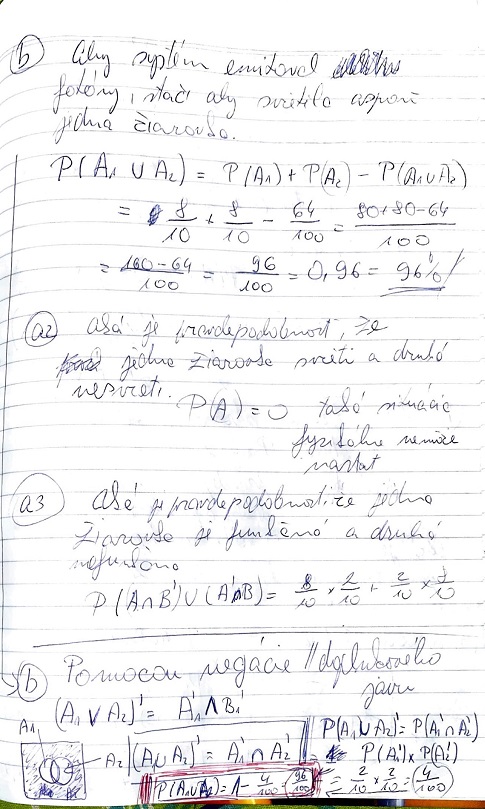 b) Aby systém emitoval
fotóny, stačí aby svietila aspoň
jedna žiarovka.
P(A₁ ∪ A₂) = P(A₁) + P(A₂) − P(A₁∪A₂)
= 8/10 + 8/10 − 64/100 = 80+80−64/100
= 160−64/100 = 96/100 = 0,96 = 96%
a2) aká je pravdepodobnosť, že
jedna žiarovka svieti a druhá
nesvieti.
P(A) = 0 taká situácia
fyzikálne nemôže
nastať
a3) Aká je pravdepodobnosť že jedna
žiarovka je funkčná a druhá
nefunkčná
P(A∩B')∪(A'∩B) = 8/10 × 2/10 + 2/10 ×
b) Pomocou negácie // doplnkového
javu
(A₁ ∨ A₂)' = A₁' ∧ B₁'
A₁
A₂
(A₁ ∪ A₂)' = A₁' ∩ A₂'
P(A₁∪A₂) = 1 − 4/100 = 96/100
P(A₁ ∪ A₂)' = P(A₁' ∩ A₂')
= P(A₁') × P(A₂')
= 2/10 × 2/10 = 4/100